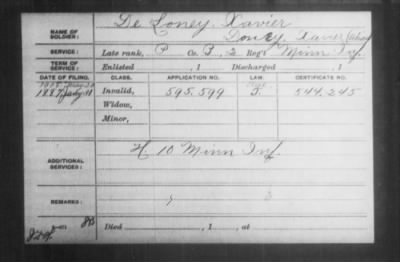 NAME OF SOLDIER: De Loney, Xavier
Loney, Xavier (alias)
SERVICE: Late rank, P Co. B, 2 Reg't Minn Inf.
TERM OF SERVICE: Enlisted , 1 Discharged , 1
DATE OF FILING. CLASS. APPLICATION NO. LAW. CERTIFICATE NO.
1887 Invalid, 595.599 544.245
Widow,
Minor,
ADDITIONAL SERVICES: H. 10 Minn Inf
REMARKS:
Died , 1 , at